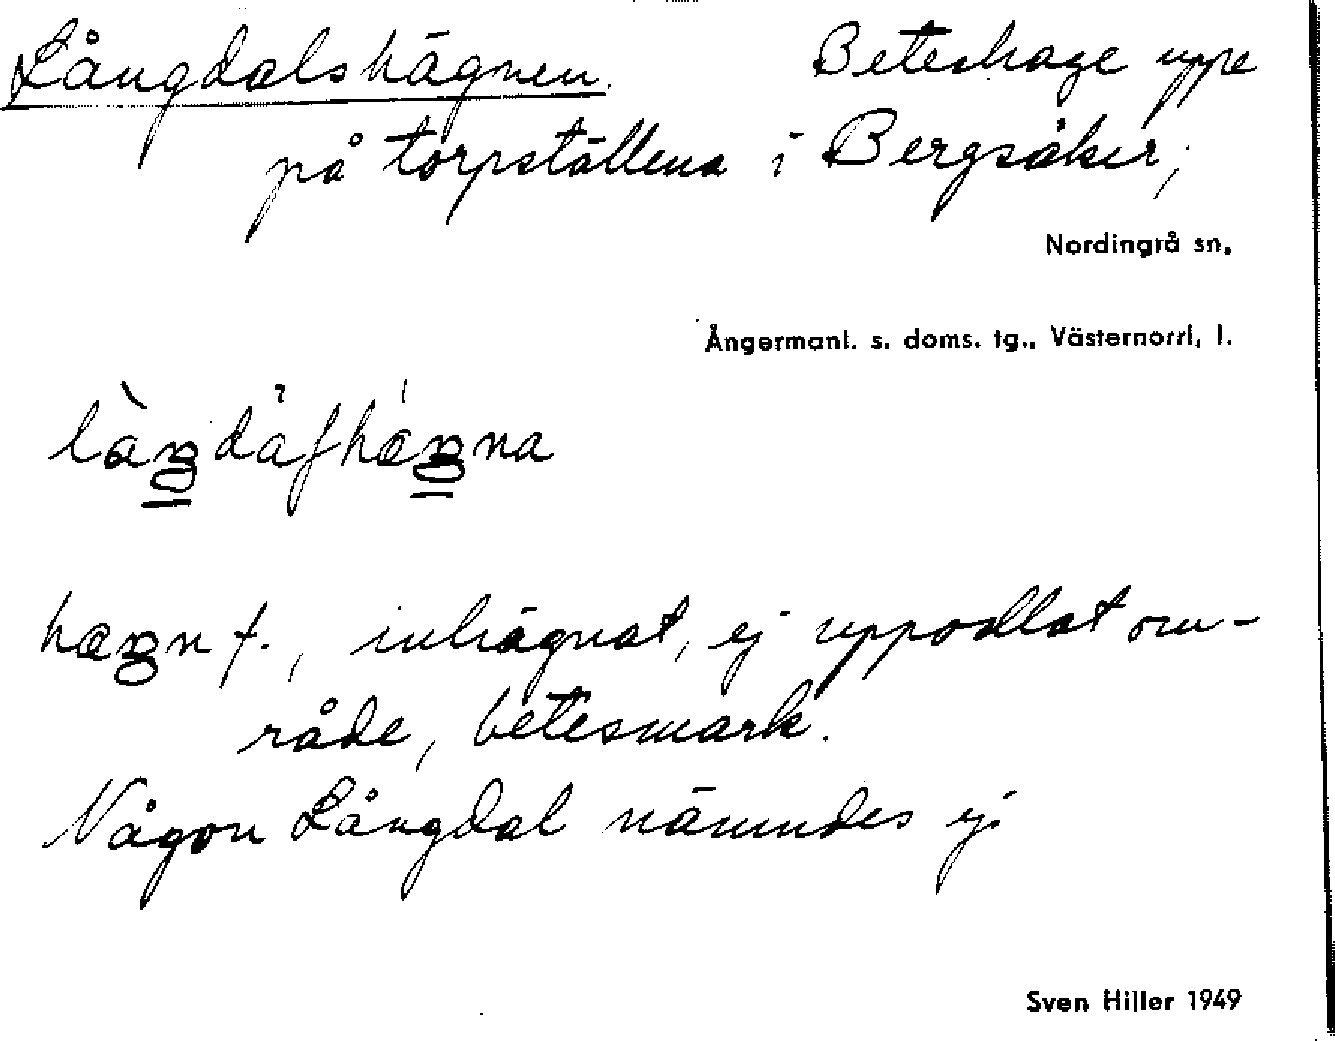 Långdalshägnen. Beteshage uppe
på torpställena i Bergsåker,
Nordingrå sn.
Ångermanl. s. doms. tg., Västernorrl. l.
hæŋn f., inhägnat, ej uppodlat om-
råde, betesmark.
Någon Långdal nämndes ej
Sven Hiller 1949